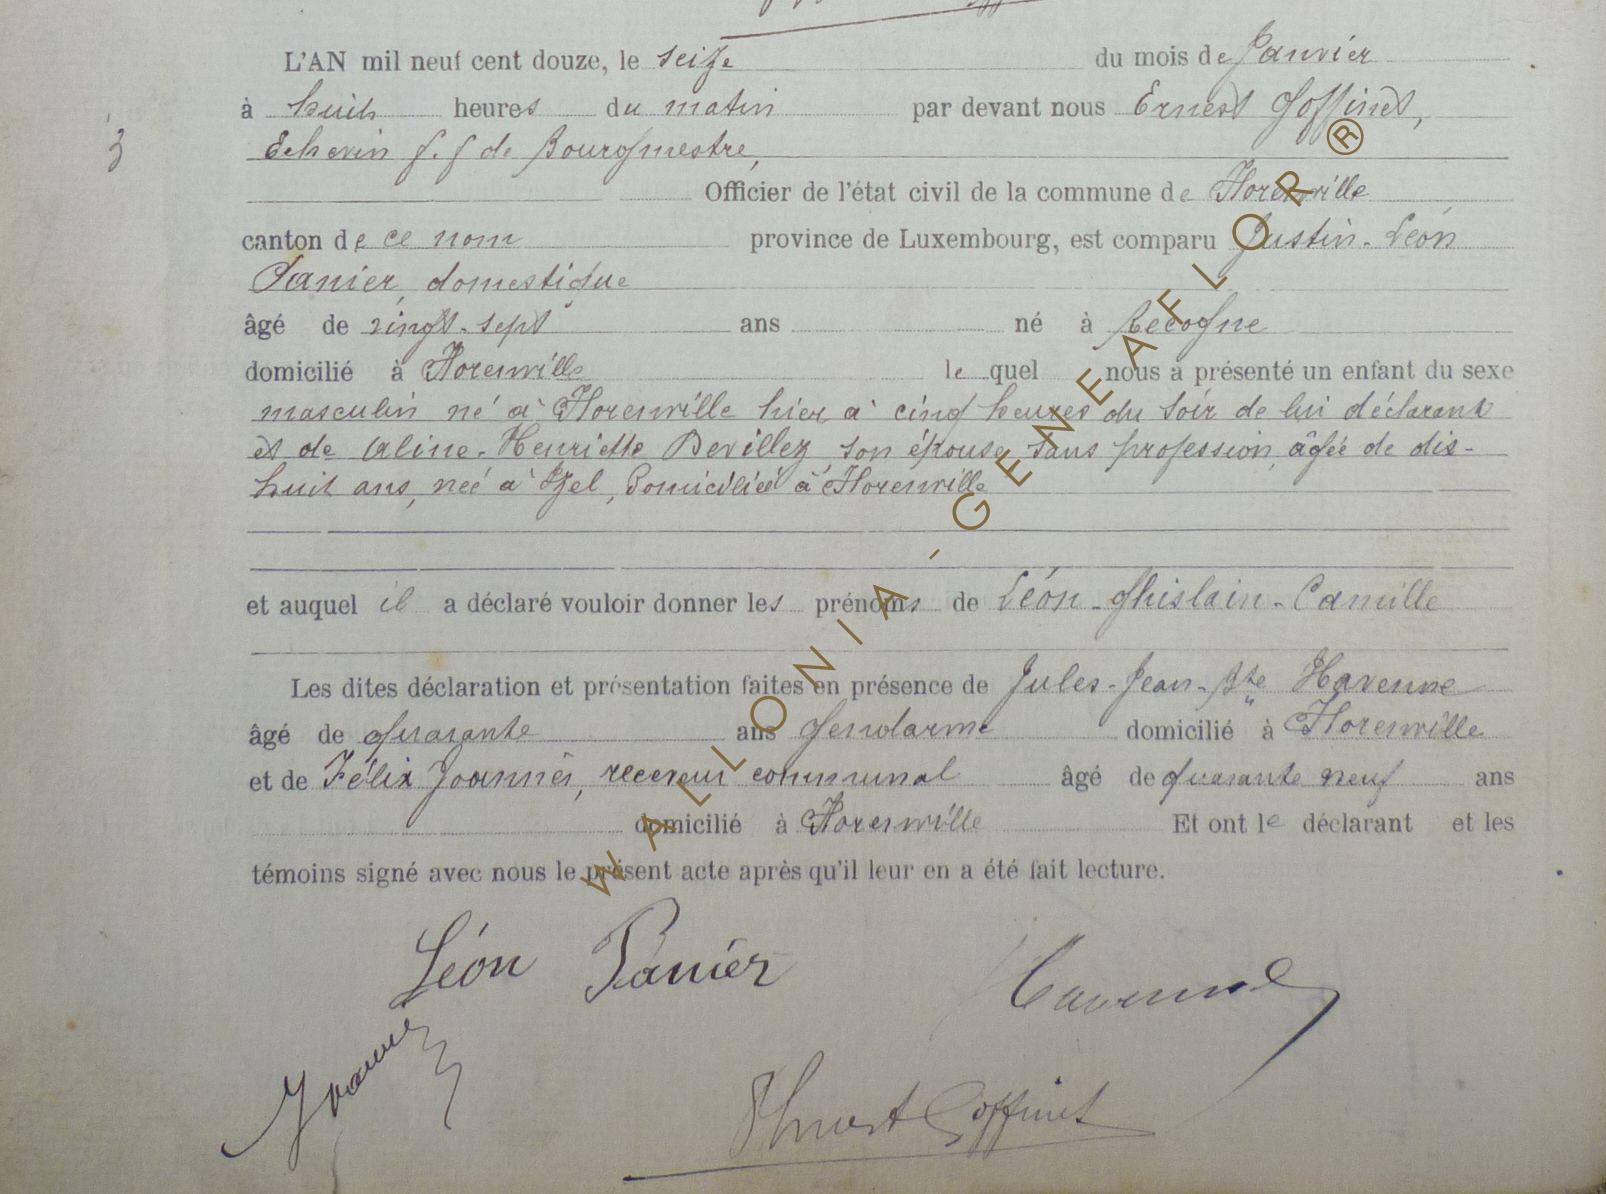 L'AN mil neuf cent douze, le seize du mois de Janvier
à huit heures du matin par devant nous Ernest Goffinet,
3
Echevin f.f de Bourgmestre,
Officier de l'état civil de la commune de Florenville
canton de ce nom province de Luxembourg, est comparu Justin-Léon
Panier, domestique
âgé de vingt-sept ans né à Recogne
domicilié à Florenville le quel nous a présenté un enfant du sexe
masculin né à Florenville hier à cinq heures du soir de lui déclarant
et de Aline-Henriette Devillez, son épouse sans profession, âgée de dis-
huit ans, née à Izel, domiciliée à Florenville
et auquel il a déclaré vouloir donner les prénoms de Léon-Ghislain-Camille
Les dites déclaration et présentation faites en présence de Jules-Jean-Bte Havenne
âgé de quarante ans Gendarme domicilié à Florenville
et de Félix Joannès, receveur communal âgé de quarante neuf ans
domicilié à Florenville Et ont le déclarant et les
témoins signé avec nous le présent acte après qu'il leur en a été fait lecture.
Léon Panier
Havenne
Joannès
Ernest Goffinet
WALLONIA-GENEAFLOR®